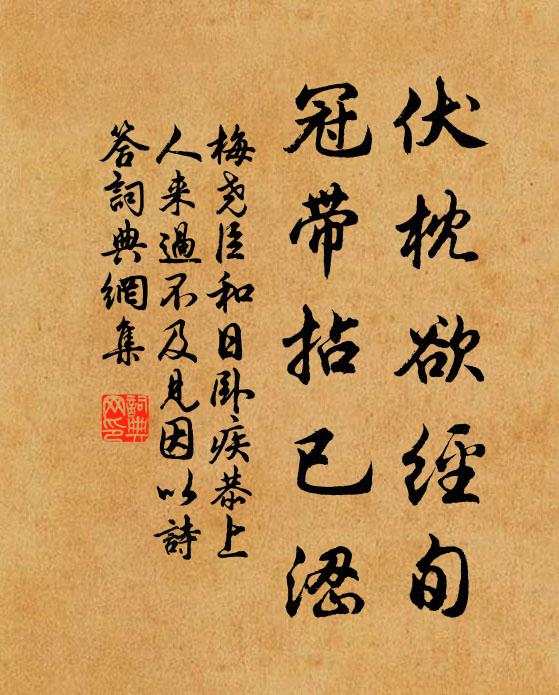 伏枕欲經旬
冠帶拈已澀
梅堯臣和日臥疾恭上
人来過不及見因以詩
答詞典網集
詞典
網印